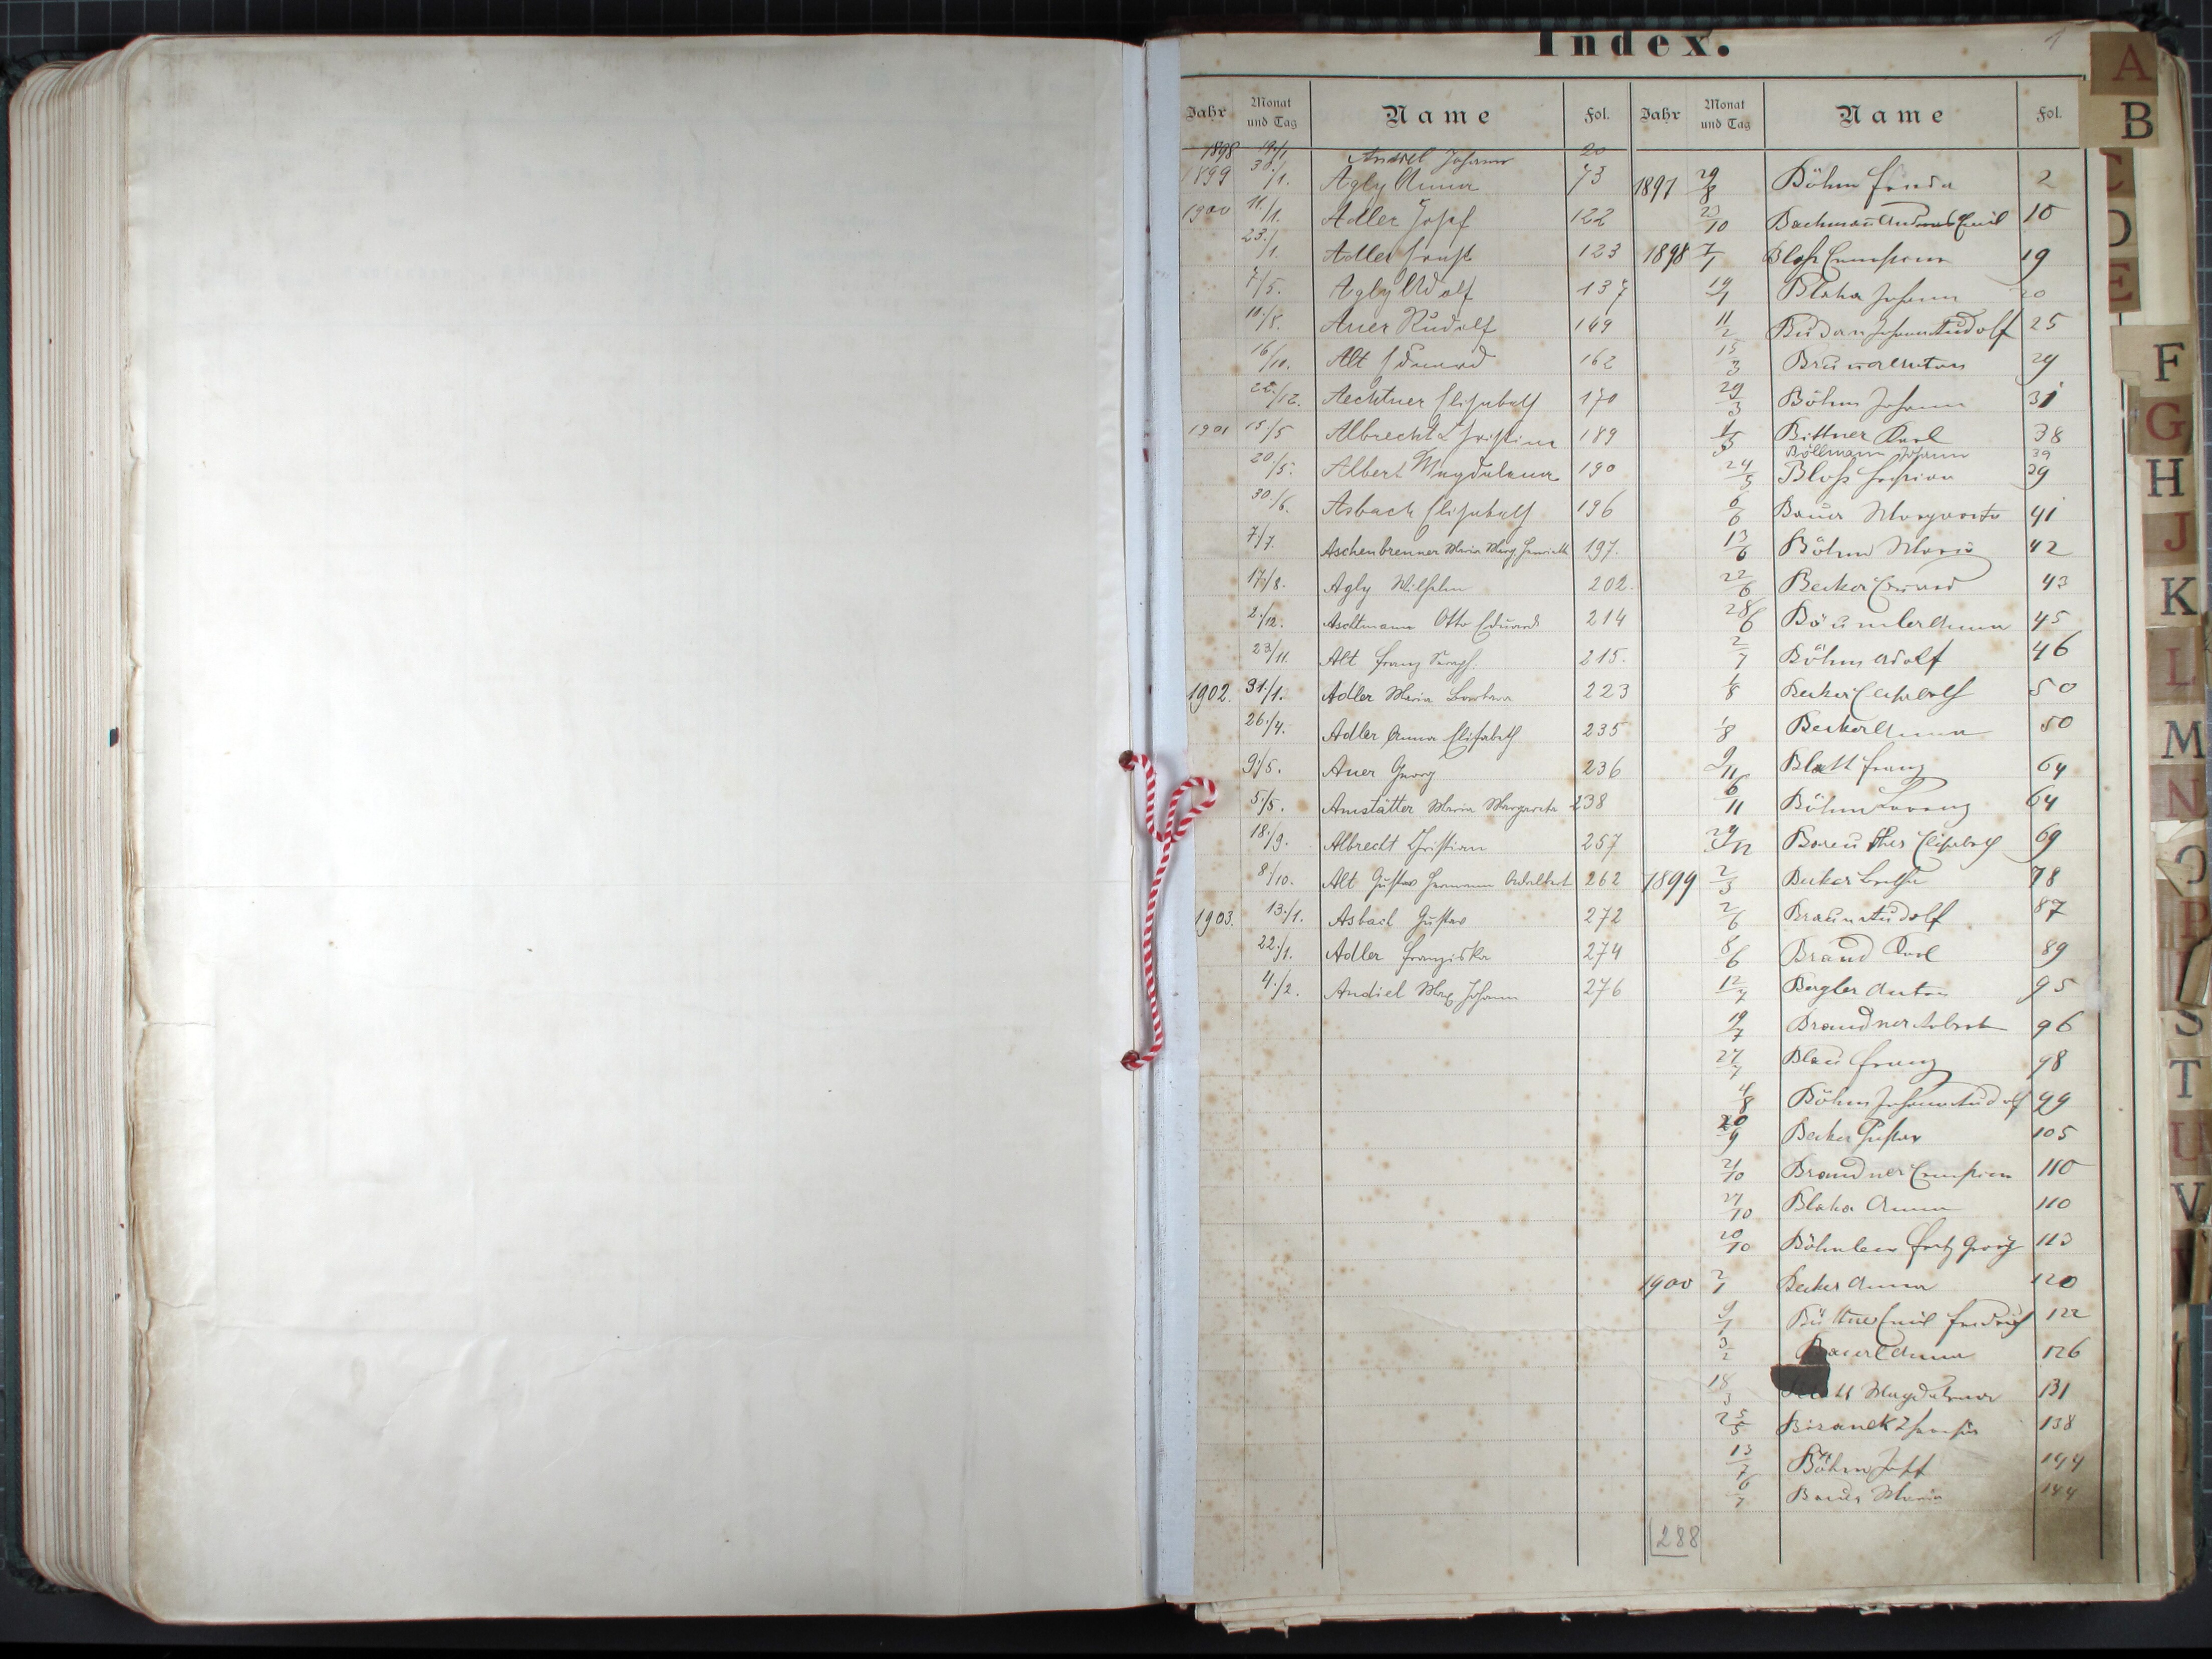 Index.
1
Jahr Monat und Tag Name Fol. Jahr Monat und Tag Name Fol.
1898 19/1 Andiel Johann 20
1899 30/1. Agly Anna 73
1900 11./1. Adler Josef 122
23./1. Adler Ernst 123
7/5. Agly Adolf 137
10./8. Auer Rudolf 149
16/10. Alt Eduard 162
22./12. Aechtner Elisabeth 170
1901 15./5 Albrecht Christina 189
20./5. Albert Magdalena 190
30./6. Asbach Elisabeth 196
7./7. Aschenbrenner Maria Marg. Henriette 197.
17./8. Agly Wilhelm 202.
2./12. Aschtmann Otto Eduard 214
23/11. Alt Franz Seraph. 215.
1902. 31./1. Adler Maria Barbara 223
26./4. Adler Anna Elisabeth 235
9./5. Auer Georg 236
5./5. Amstätter Maria Margareta 238
18./9. Albrecht Christian 257
8./10. Alt Gustav Hermann Adalbert 262
1903. 13./1. Asbach Gustav 272
22./1. Adler Franziska 274
4./2. Andiel Max Johann 276
1897 29/8 Böhm Frida 2
23/10 Bachmann Andreas Emil 10
1898 7/1 Bloß 19
19/1 Blaha Johann 20
11/2 Johann Rudolf 25
15/3 Braun Anton 29
29/3 Böhm Johann 31
1/5 Bittner Karl 38
Böllmann Johann 39
24/5 Bloß 39
6/6 Bauer Margareta 41
13/6 Böhm Maria 42
22/6 Becker Conrad 43
28/6 Bäumler Anna 45
2/7 Böhm Adolf 46
1/8 Becker Elisabeth 50
1/8 Becker Anna 50
9/11 Blatt Franz 64
6/11 Böhm Lorenz 64
29/12 Bareuther Elisabeth 69
1899 2/3 Becker Bertha 78
2/6 Braun Rudolf 87
8/6 Brand Karl 89
12/7 Bergler Anton 95
19/7 Brandner Robert 96
27/7 Blau Franz 98
4/8 Böhm Johann Rudolf 99
20/9 Becker Gustav 105
21/10 Brandner 110
27/10 Blaha Anna 110
20/10 Böhmlein Fritz Georg 113
1900 2/1 Becker Anna 120
9/1 Büttner Emil Friedrich 122
3/2 Bauerl Anna 126
18/3 Magdalena 131
25/5 138
13/7 Böhm Josef 144
6/7 Bauer Maria 144
288
A
B
C
D
E
F
G
H
J
K
L
M
N
O
P
S
T
U
V